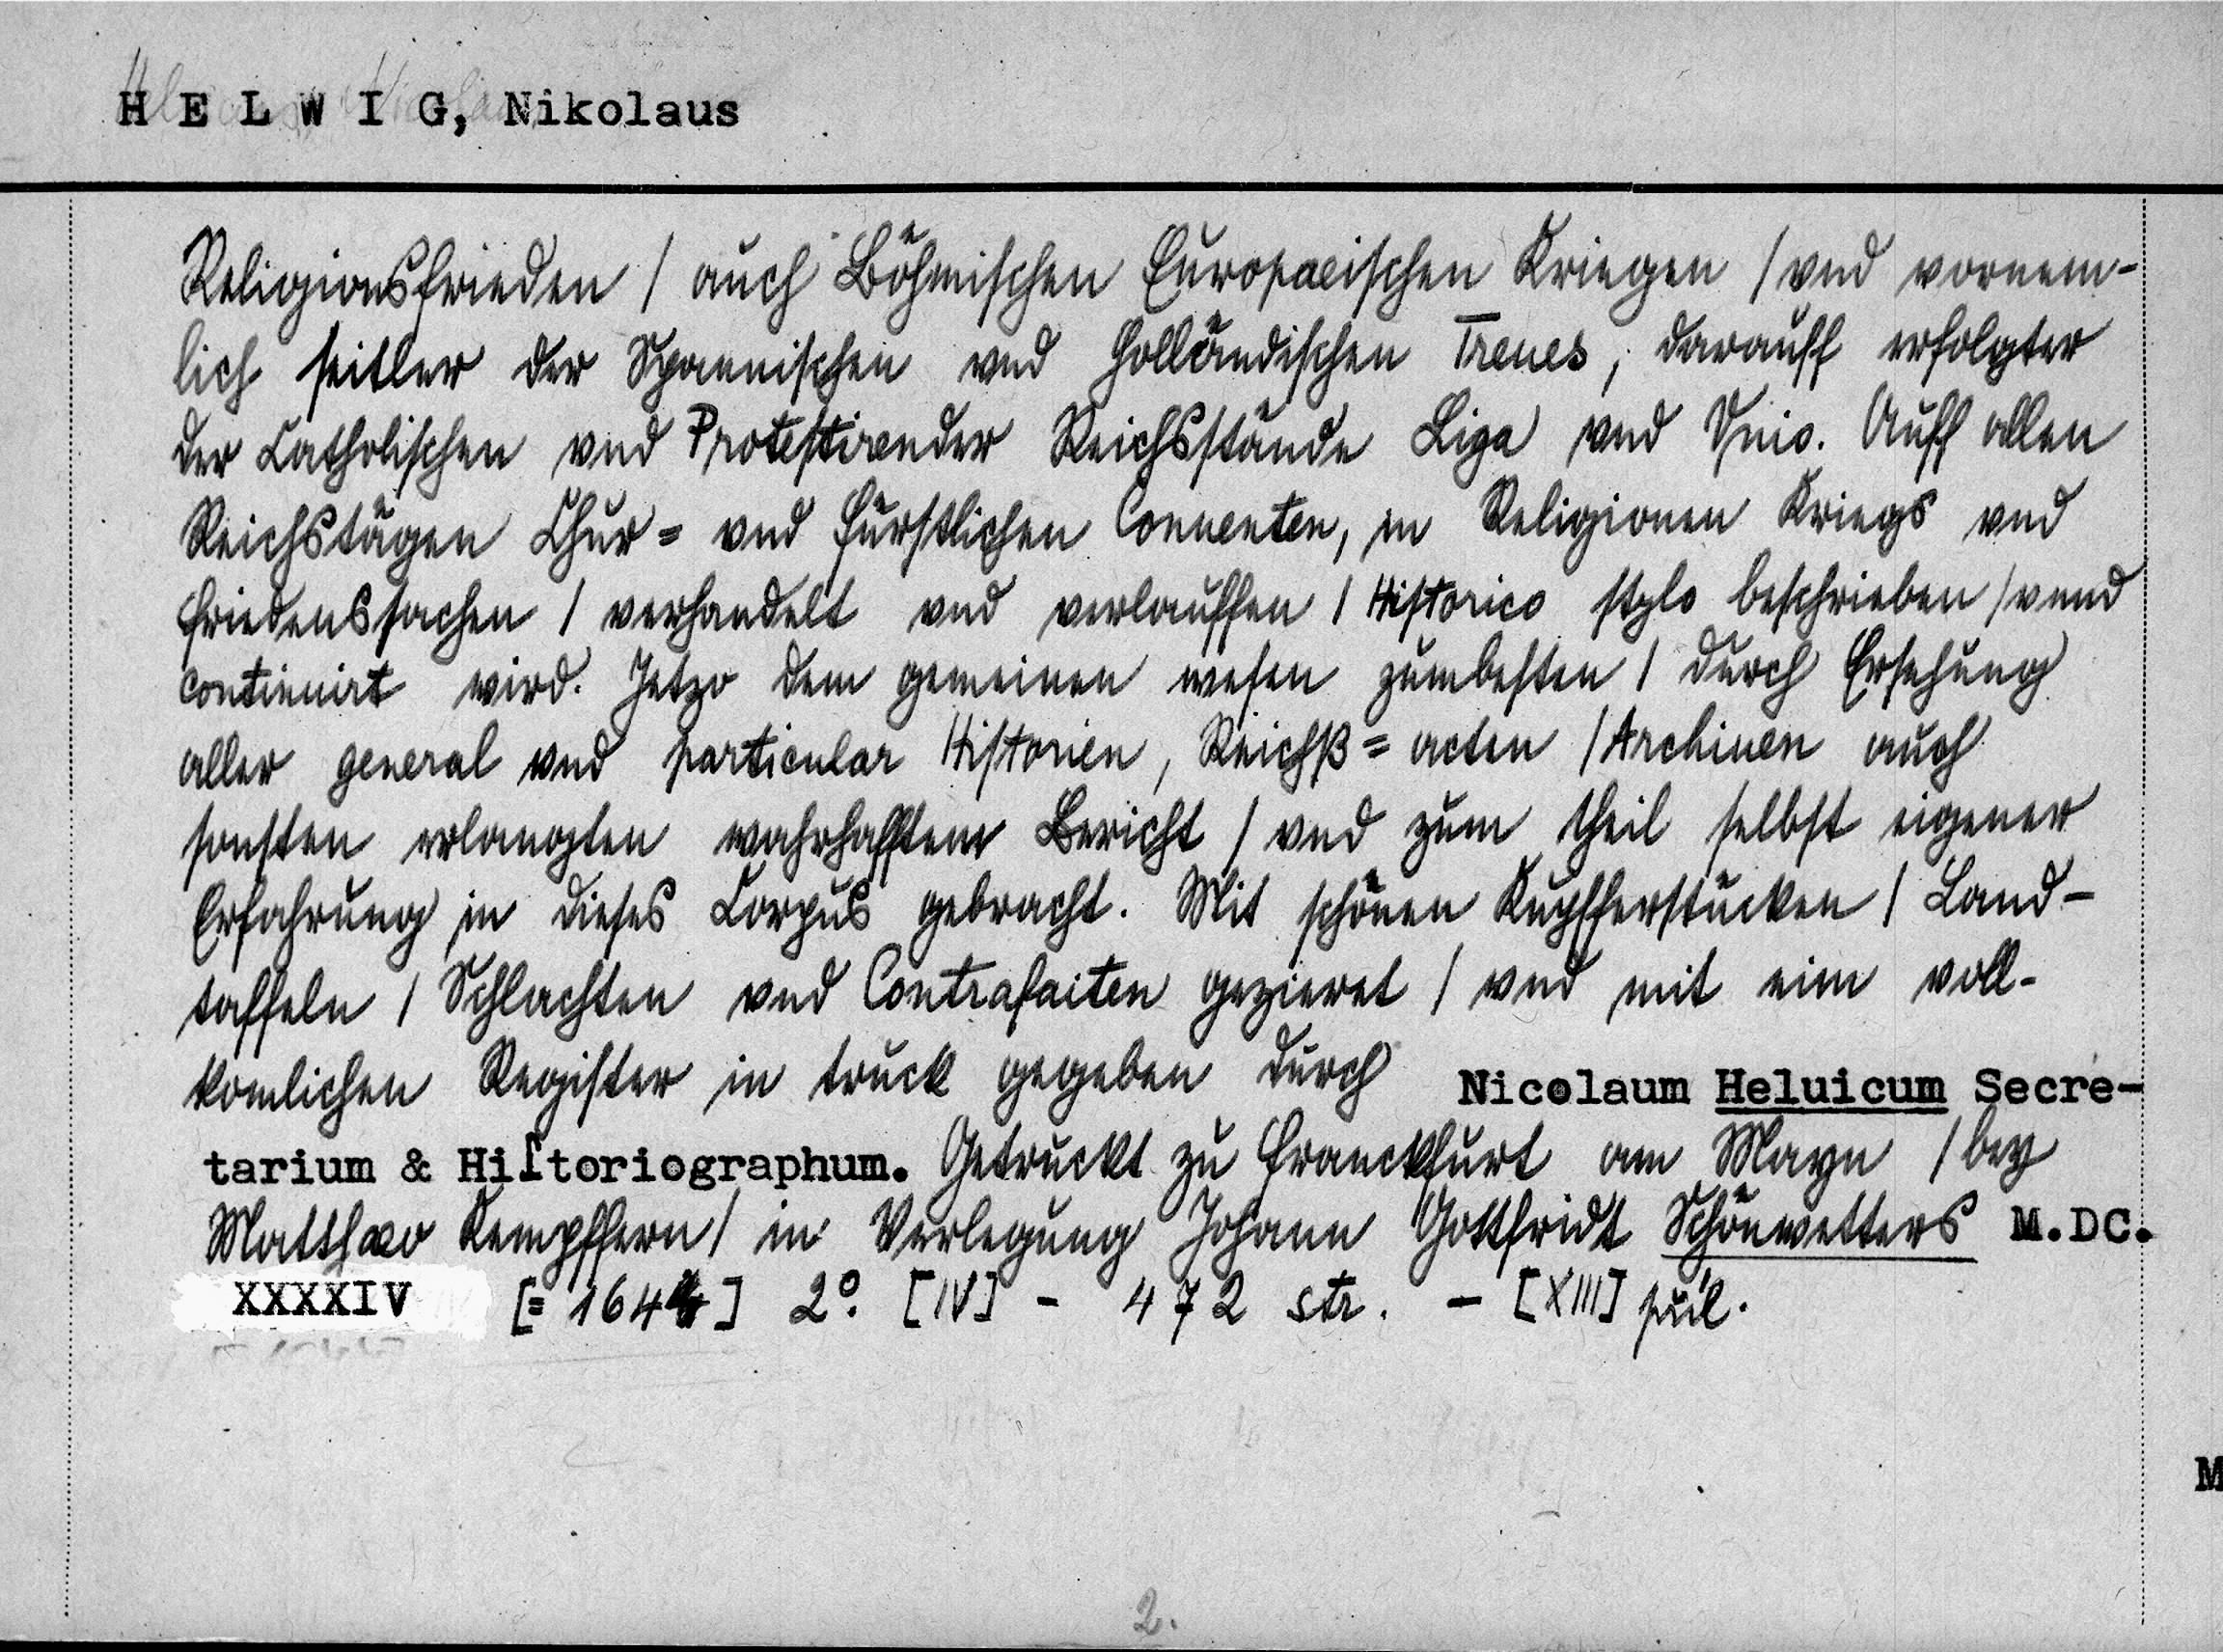 H E L W I G, Nikolaus
Religionsfrieden / auch Böhmischen Europaeischen Kriegen / vnd vornem-
lich seitler der Spannischen vnd Holländischen Treues, darauff erfolgter
der Catholischen vnd Protestirender Reichsstände Liga vnd Vnio. Auff allen
Reichstägen Chur= vnd Fürstlichen Conuenten, in Religionen Kriegs vnd
Friedenssachen / verhandelt vnd verlauffen / Historico stylo beschrieben / vnnd
continuirt wird. Jetzo dem gemeinen wesen zumbesten / durch Ersehung
aller general vnd particular Historien, Reichß= acten / Archiuen auch
sonsten erlangten wahrhafftem Bericht / vnd zum theil selbst eigener
Erfahrung in dieses Corpus gebracht. Mit schönen Kupfferstucken / Land-
taffeln / Schlachten vnd Contrafaiten gezieret / vnd mit eim voll-
komlichen Register in truck gegeben durch Nicolaum Heluicum Secre-
tarium & Hiſtoriographum. Getruckt zu Franckfurt am Mayn / bey
Matthæo Kempffern / in Verlegung Johann Gottfridt Schönwetters M.DC.
XXXXIV [= 1644] 2°. [IV] - 472 str. - [XIII] příl.
M
2.